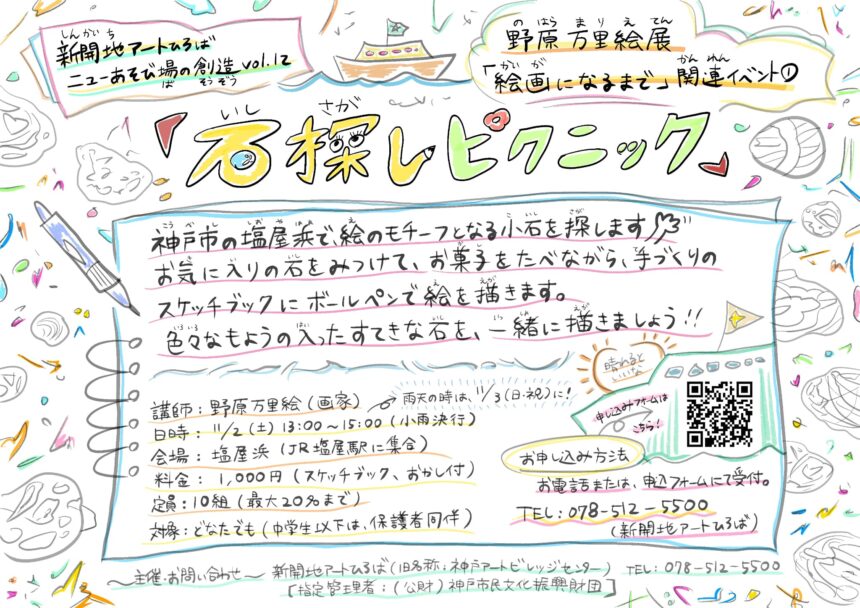 しんかいち
新開地アートひろば
ニューあそび場の創造 vol.12
ば そうぞう
のはら まりえ てん
野原 万里絵 展
かいが かんれん
「絵画になるまで」関連イベント①
いし さが
「石探しピクニック」
こうべし しおやはま え こいし さが
神戸市の塩屋浜で、絵のモチーフとなる小石を探します
お気に入りの石をみつけて、お菓子をたべながら、手づくりの
スケッチブックにボールペンで絵を描きます。
いろいろ はい いっしょ えが
色々なもようの入ったすてきな石を、一緒に描きましょう!!
晴れると
いいな
講師：野原万里絵（画家）
雨天の時は、11/3(日・祝)に!
日時：11/2（土）13:00～15:00（小雨決行）
会場：塩屋浜（JR塩屋駅に集合）
料金：1,000円（スケッチブック、おかし付）
定員：10組（最大20名まで）
対象：どなたでも（中学生以下は、保護者同伴）
申し込みフォームは
こちら!
お申し込み方法
お電話または、申込フォームにて受付。
TEL:078-512-5500
（新開地アートひろば）
～主催・お問い合わせ～ 新開地アートひろば（旧名称：神戸アートビレッジセンター） TEL:078-512-5500
［指定管理者：（公財）神戸市民文化振興財団］